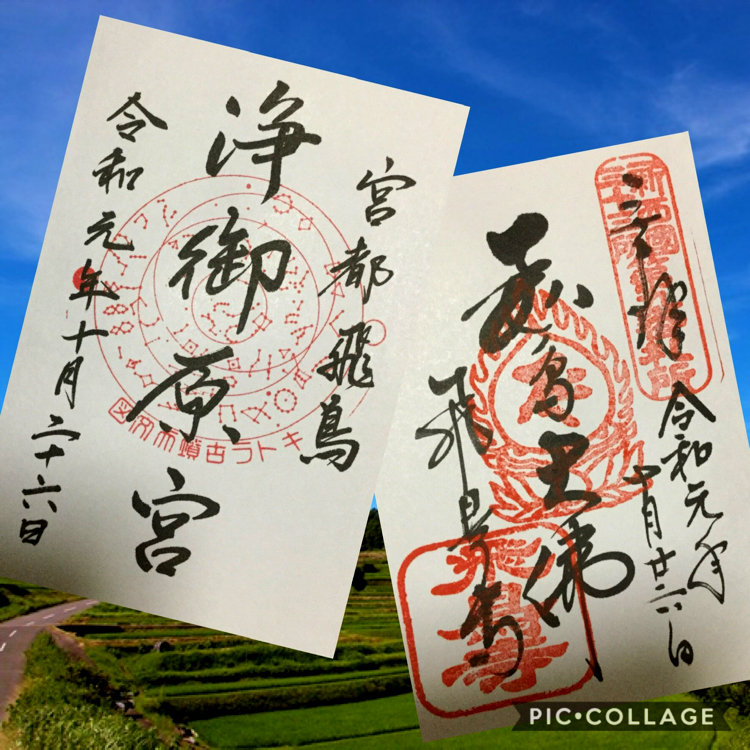 宮都飛鳥
浄御原宮
令和元年十月二十六日
キトラ古墳天文図
奉拝
令和元年
十月廿六日
飛鳥大佛
飛鳥寺
PIC•COLLAGE